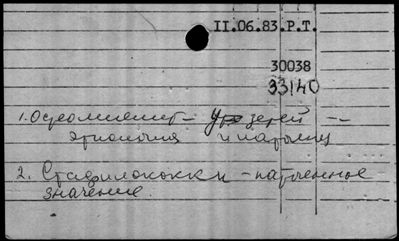 II.06.83.Р.Т.
30038
33140
1. Остеомиелит - у зверей --
этиология и
2. Стафилококки - патогенное
значение.